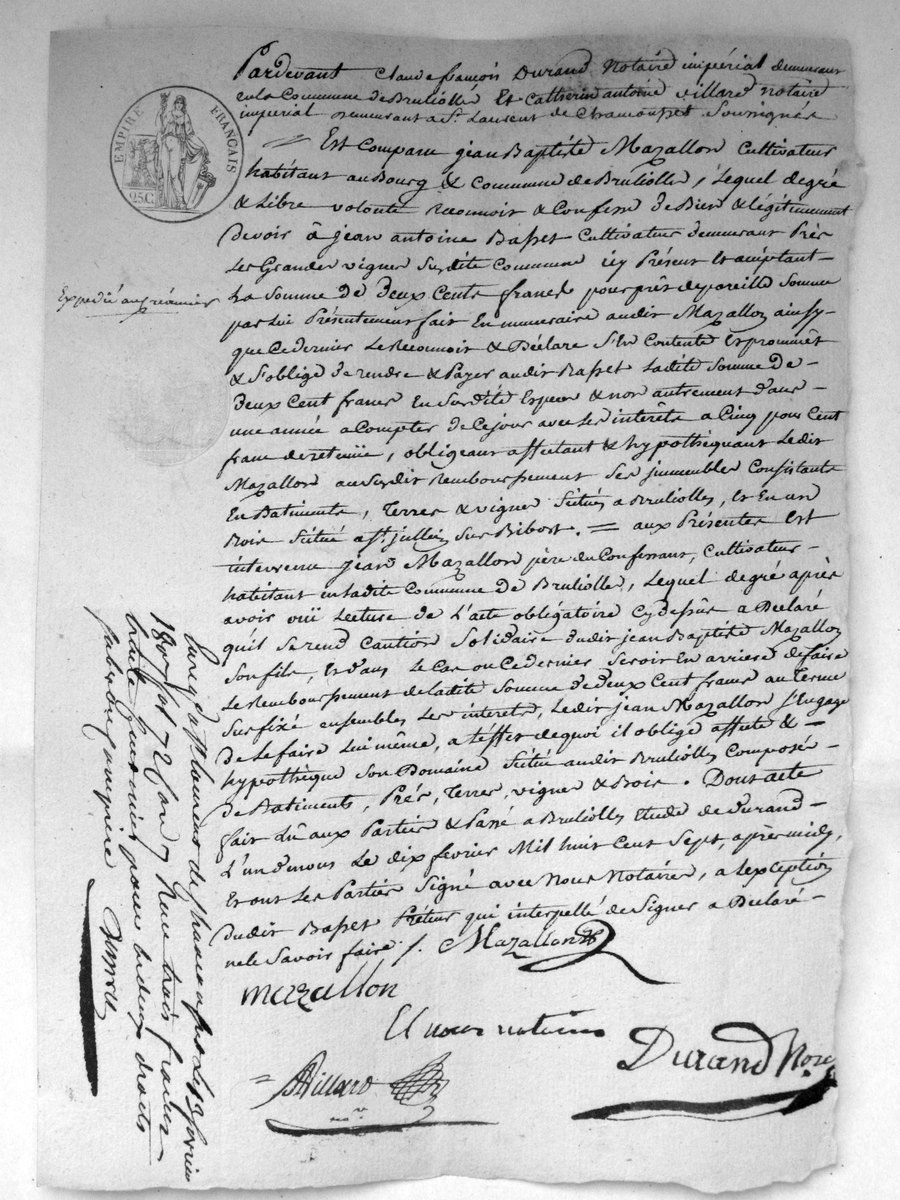 EMPIRE FRANÇAIS
25C.
Pardevant Claude françois Durand Notaire impérial demeurant
en la Commune de Brulliolle Et Catherin antoine Villard notaire
imperial demeurant a St. Laurent de Chamousset Soussignés
Est Comparu jean Baptiste Mazallon Cultivateur
habitant au Bourg & Commune de Brulliolle, Lequel de gré
& Libre volonté reconnoit & Confesse de Bien & légitimement
devoir à jean antoine Basset Cultivateur demeurant Près
Les Grandes vignes Susdite Commune icy Présent & acceptant
La Somme de deux Cents francs pour prêt de pareille Somme
par lui Présentement fait En numeraire audit Mazallon ainsy
que Ce dernier Le Reconnoit & Déclare S'en Contente Et promet
& S'oblige de rendre & Payer audit Basset Ladite Somme de
deux Cent francs En Susdite Espece & non autrement d'aus
une année a Compter de Ce jour avec Les interêts a Cinq pour Cent
franc de retenüe, obligeant affectant & hypothéquant Ledit
Mazallon au Susdit Remboursement Ses immeubles Consistants
En Batiments, Terres & vignes Situés a Brulliolles, Et En un
Bois Situé a St. jullien Sur Bibost. = aux Présentes Est
intervenu jean Mazallon père du Confessant, Cultivateur
habitant en Ladite Commune de Brulliolle, Lequel de gré après
avoir oüi Lecture de L'acte obligatoire Cy dessus a Déclaré
qu'il Se rend Caution Solidaire dudit jean Baptiste Mazallon
Son fils, Et dans Le Cas ou Ce dernier Seroit En arriere de faire
Le Remboursement de Ladite Somme de deux Cent francs au Terme
Sus fixé ensembles Les interets, Ledit jean Mazallon S'Engage
de Le faire Lui même, a L'effet de quoi il oblige affecte &
hypothèque Son Domaine Situé audit Brulliolles Composé
de Batiments, Prés, Terres, vignes & Bois. Dont acte
fait Lû aux Parties & Passé a Brulliolles Etude de Durand
L'un d'nous Le dix fevrier Mil huit Cent Sept, après midy,
Et ont Les Parties Signé avec Nous Notaires, a L'exception
dudit Basset Prêteur qui interpellé de Signer a Déclaré
ne le Savoir faire.
Mazallon fils
mazallon
Et nous notaires
Villard
nore
Durand Nore
Expedié au créancier
Enregistré a St. Laurent de Chamousset Le 13 fevrier
1807 fol 72 Reçu trois francs
trente centimes pour les deux droits